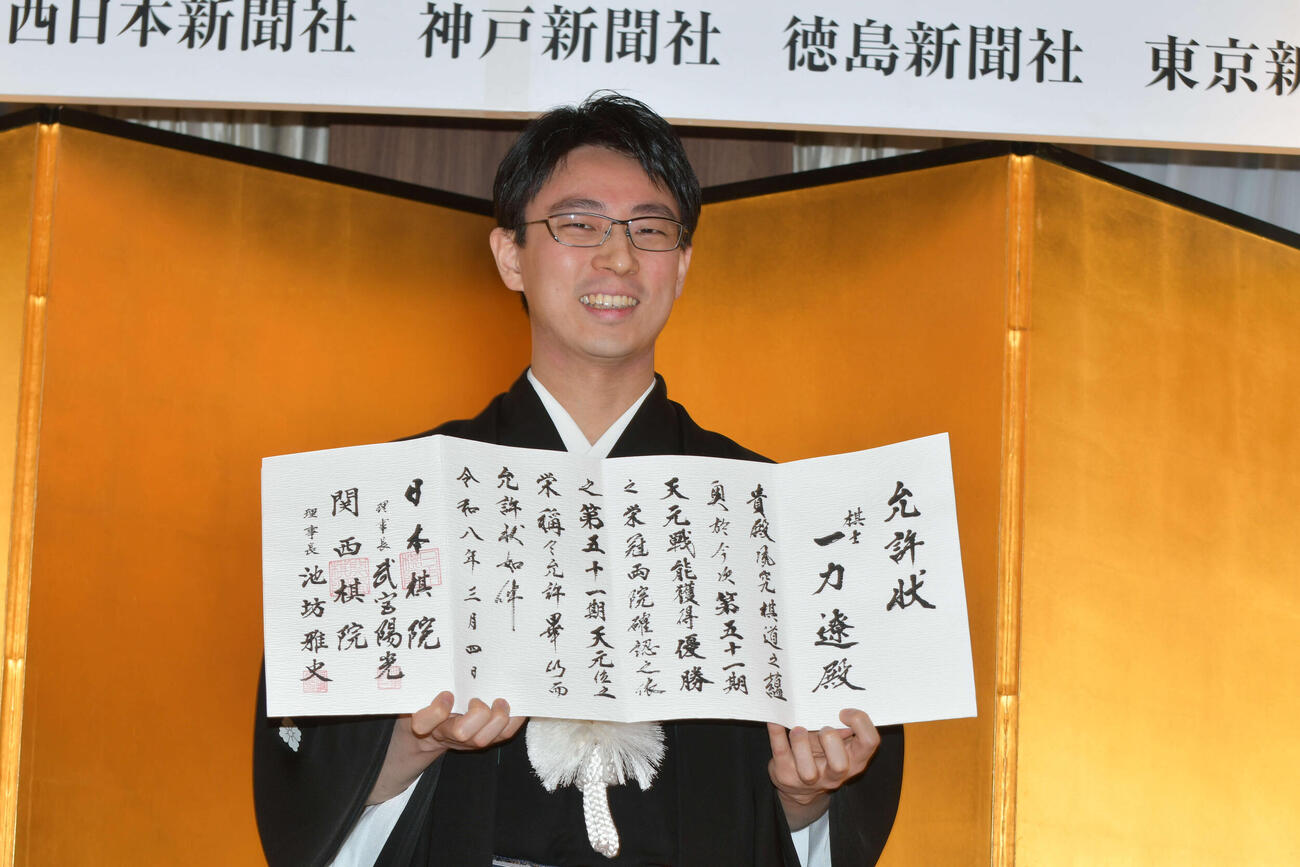 西日本新聞社 神戸新聞社 徳島新聞社 東京新
允許状
棋士
一力遼殿
貴殿隤究棋道之蘊
奥於今次第五十一期
天元戦能獲得優勝
之栄冠両院確認之依
之第五十一期天元位之
栄称々允許畢仍而
允許状如件
令和八年三月四日
日本棋院
理事長 武宮陽光
関西棋院
理事長 池坊雅史